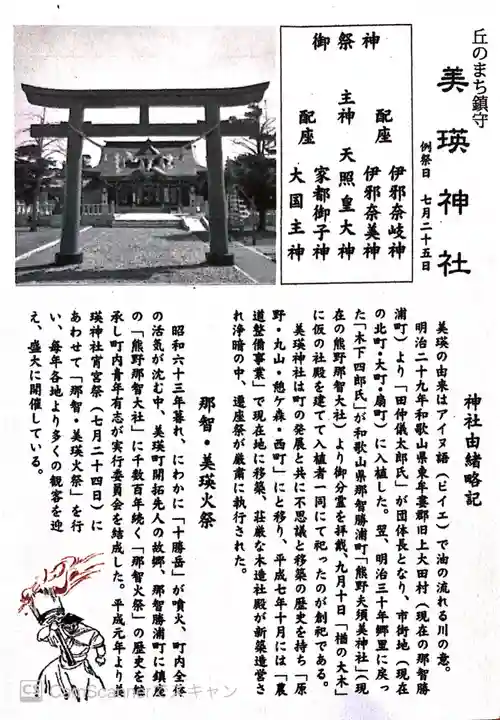 丘のまち鎮守
美瑛神社
例祭日 七月二十五日
御祭神
配座 伊邪奈岐神
伊邪奈美神
主神 天照皇大神
配座 家都御子神
大国主神
神社由緒略記
美瑛の由来はアイヌ語（ピイエ）で油の流れる川の意。
明治二十九年和歌山県東牟婁郡旧上大田村（現在の那智勝
浦町）より「田仲儀太郎氏」が団体長となり、市街地（現在
の北町・大町・扇町）に入植した。翌、明治三十年郷里に戻っ
た「木下四郎氏」が和歌山県那智勝浦町「熊野夫須美神社」（現
在の熊野那智大社）より御分霊を拝戴、九月十日「楢の大木」
に仮の社殿を建てて入植者一同にて祀ったのが創祀である。
美瑛神社は町の発展と共に不思議と移築の歴史を持ち「原
野・丸山・憩ケ森・西町」にと移り、平成七年十月には「農
道整備事業」で現在地に移築、荘厳な木造社殿が新築造営さ
れ浄暗の中、遷座祭が厳粛に執行された。
那智・美瑛火祭
昭和六十三年暮れ、にわかに「十勝岳」が噴火、町内全体
の活気が沈む中、美瑛町開拓先人の故郷、那智勝浦町に鎮座
の「熊野那智大社」に千数百年続く「那智火祭」の歴史を伝
承し町内青年有志が実行委員会を結成した。平成元年より美
瑛神社宵宮祭（七月二十四日）に
あわせて「那智・美瑛火祭」を行
い、毎年各地より多くの観客を迎
え、盛大に開催している。
CS CamScanner でスキャン